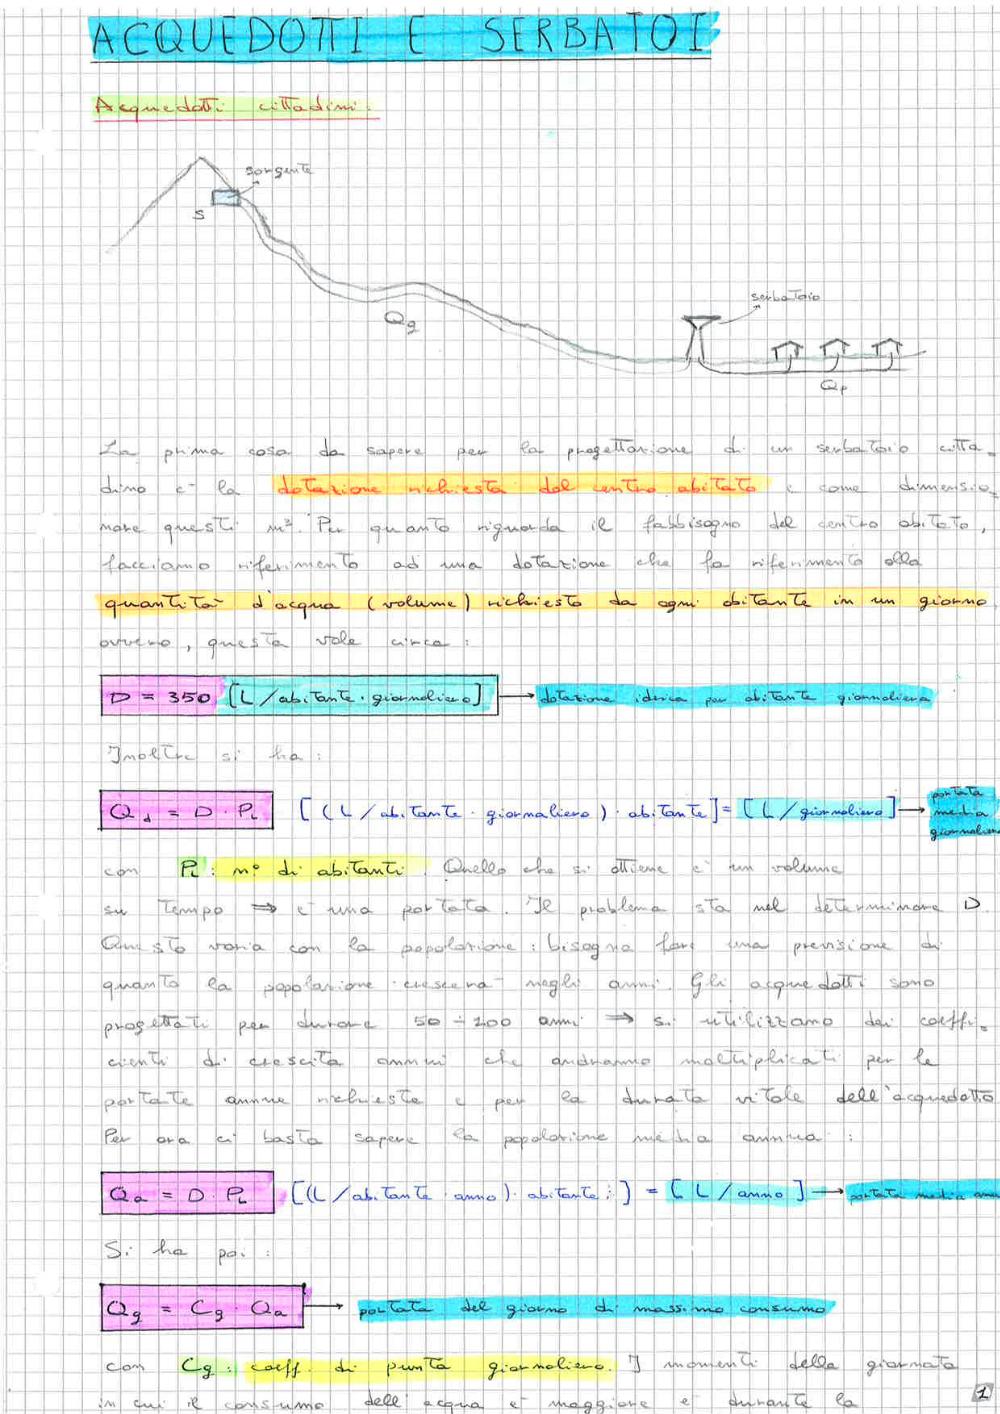 ACQUEDOTTI E SERBATOI
Acquedotti cittadini:
sorgente
S
serbatoio
Qg
Qp
La prima cosa da sapere per la progettazione di un serbatoio citta-
dino è la dotazione richiesta dal centro abitato e come dimensio-
nare questi m³. Per quanto riguarda il fabbisogno del centro abitato,
facciamo riferimento ad una dotazione che fa riferimento alla
quantità d'acqua (volume) richiesto da ogni abitante in un giorno
ovvero, questa vale circa:
D = 350 [L/abitante·giornaliero] → dotazione idrica per abitante giornaliera
Inoltre si ha:
Qd = D · Pi [(L/abitante·giornaliero)·abitante] = [L/giornaliero] → portata
media
giornaliera
con Pi: n° di abitanti. Quello che si ottiene è un volume
su tempo ⇒ è una portata. Il problema sta nel determinare D.
Questo varia con la popolazione: bisogna fare una previsione di
quanto la popolazione crescerà negli anni. Gli acquedotti sono
progettati per durare 50 ÷ 100 anni ⇒ si utilizzano dei coeffi-
cienti di crescita annui che andranno moltiplicati per le
portate annue richieste e per la durata vitale dell'acquedotto
Per ora ci basta sapere la popolazione media annua:
Qa = D · Pi [(L/abitante·anno)·abitanti] = [L/anno] → portata media
Si ha poi:
Qg = Cg · Qa → portata del giorno di massimo consumo
con Cg: coeff. di punta giornaliero. I momenti della giornata
in cui il consumo dell'acqua è maggiore è durante la
1